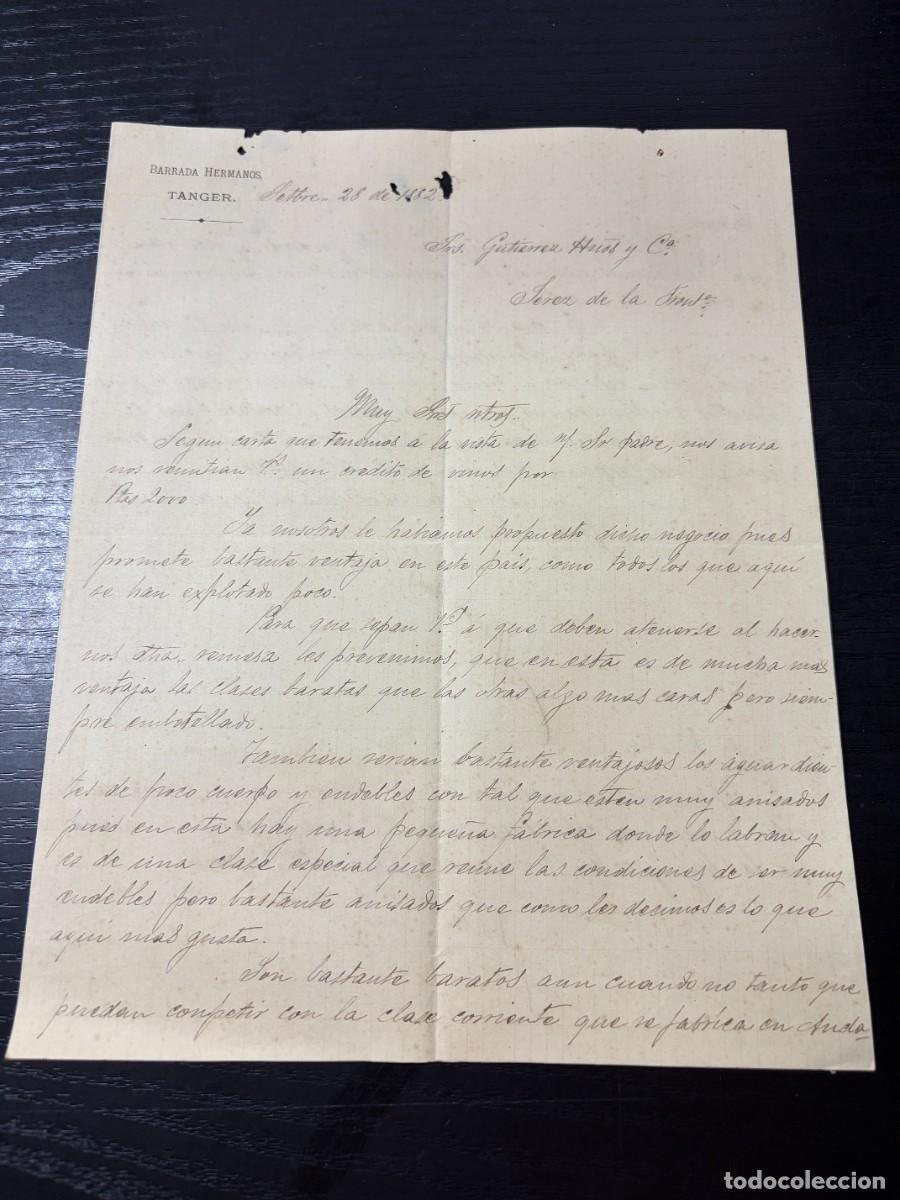 BARRADA HERMANOS,
TANGER. Setbre. 28 de 1882
Srs. Gutierrez Hnos y Ca.
Jerez de la Fronte.
Muy Sres ntros.
Segun carta que tenemos á la vista de n/. Sr padre, nos avisa
nos remitian Vs. un credito de vinos por
Ptas 2000
Ya nosotros le habiamos propuesto dicho negocio pues
promete bastante ventaja en este pais, como todos los que aqui
se han explotado poco.
Para que sepan Vs á que deben atenerse al hacer-
nos otra, remesa les prevenimos, que en esta es de mucha mas
ventaja las clases baratas que las otras algo mas caras pero siem-
pre embotellado.
Tambien serian bastante ventajosos los aguardien-
tes de poco cuerpo y endebles con tal que esten muy anisados
pues en esta hay una pequeña fábrica donde lo labran y
es de una clase especial que reune las condiciones de ser muy
endebles pero bastante anisados que como les decimos es lo que
aqui mas gusta.
Son bastante baratos aun cuando no tanto que
puedan conpetir con la clase corriente que se fabrica en Anda-
todocoleccion